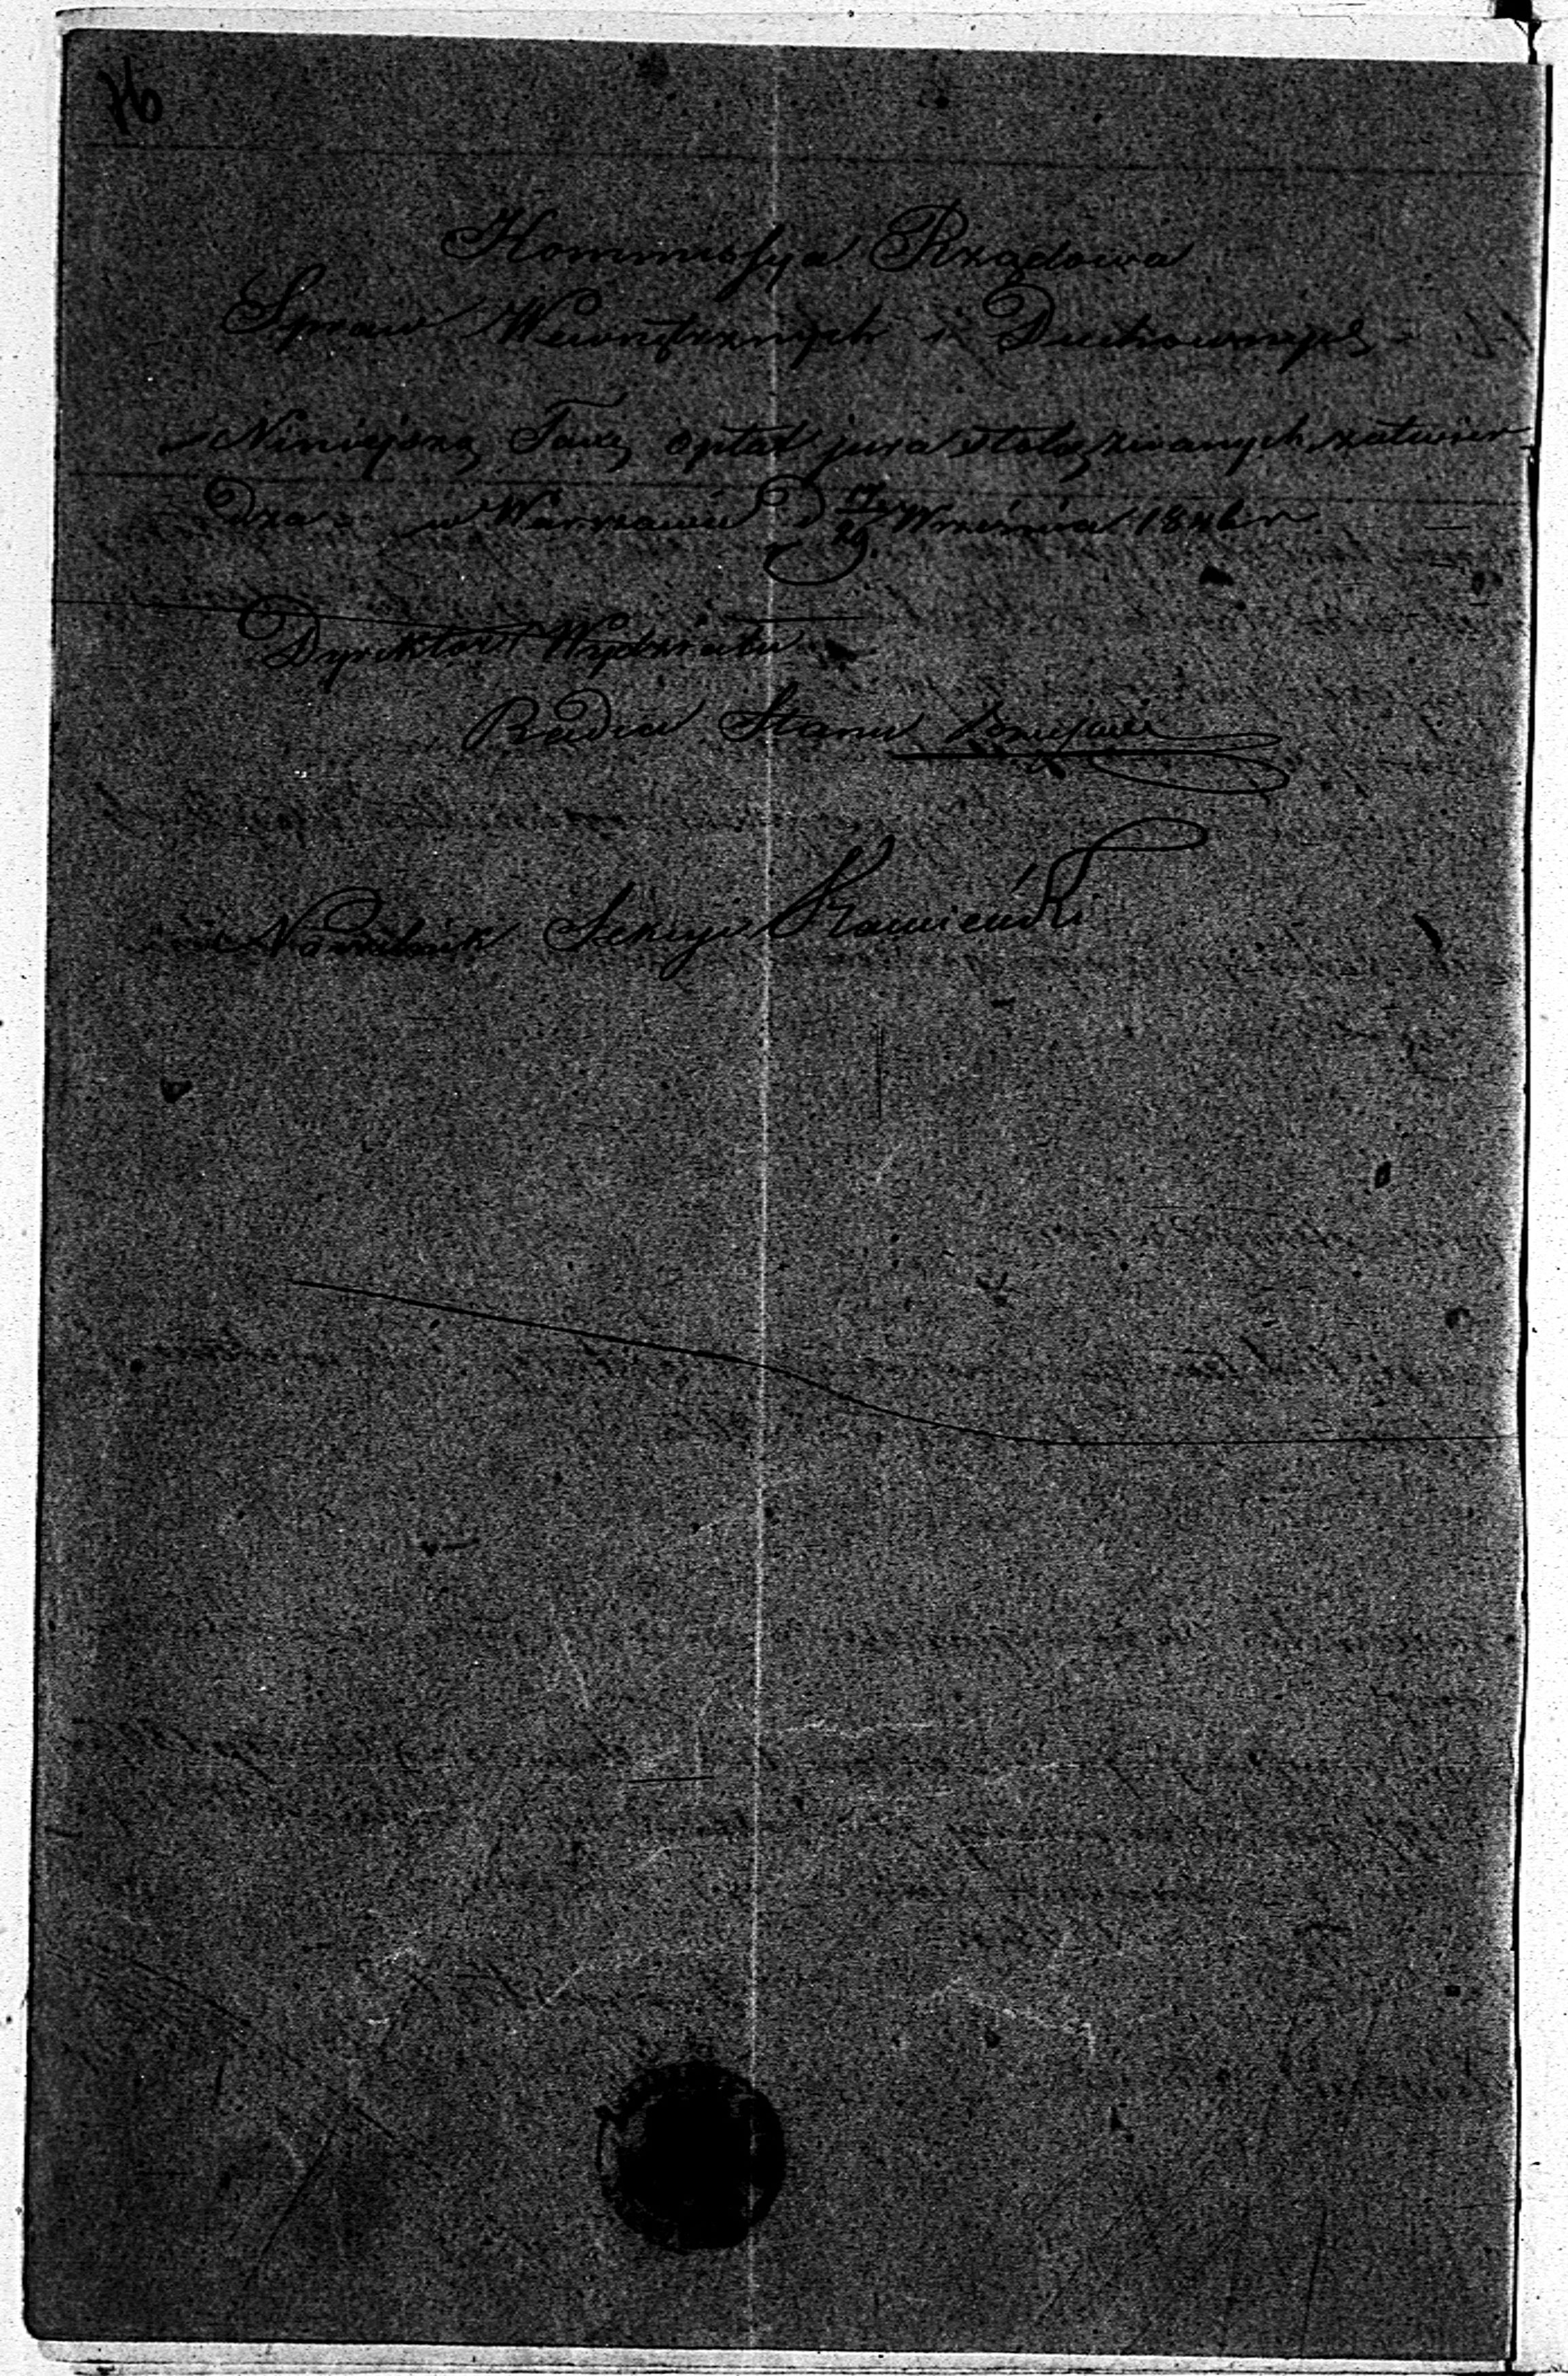 76
Kommissya Rządowa
Spraw Wewnętrznych i Duchownych
Niniejszą Taxę opłat jura stolæ zwanych zatwier
dza w Warszawie d 17/29 Września 1846 r
Dyrektor Wydziału
Radca Stanu
Naczelnik Sekcyi Kamieński